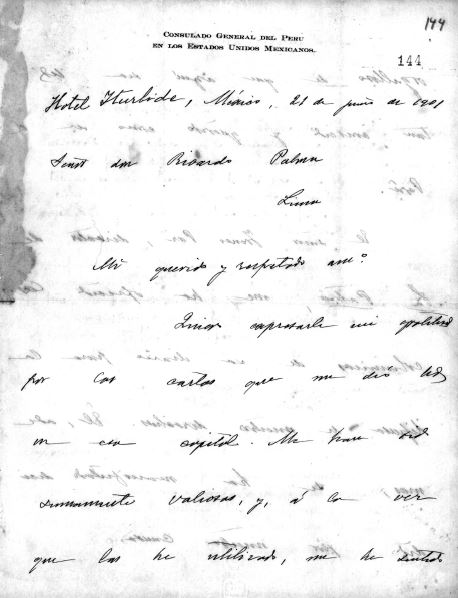 144
CONSULADO GENERAL DEL PERU
EN LOS ESTADOS UNIDOS MEXICANOS.
144
Hotel Iturbide, México, 21 de junio de 1901
Señor don Ricardo Palma
Lima
Mi querido y respetado amº
expresarle mi gratitud
por las cartas que me dió Ud
en esa capital. Me han sido
sumamente valiosas, y, á la vez
que las he utilizado, me he sentido